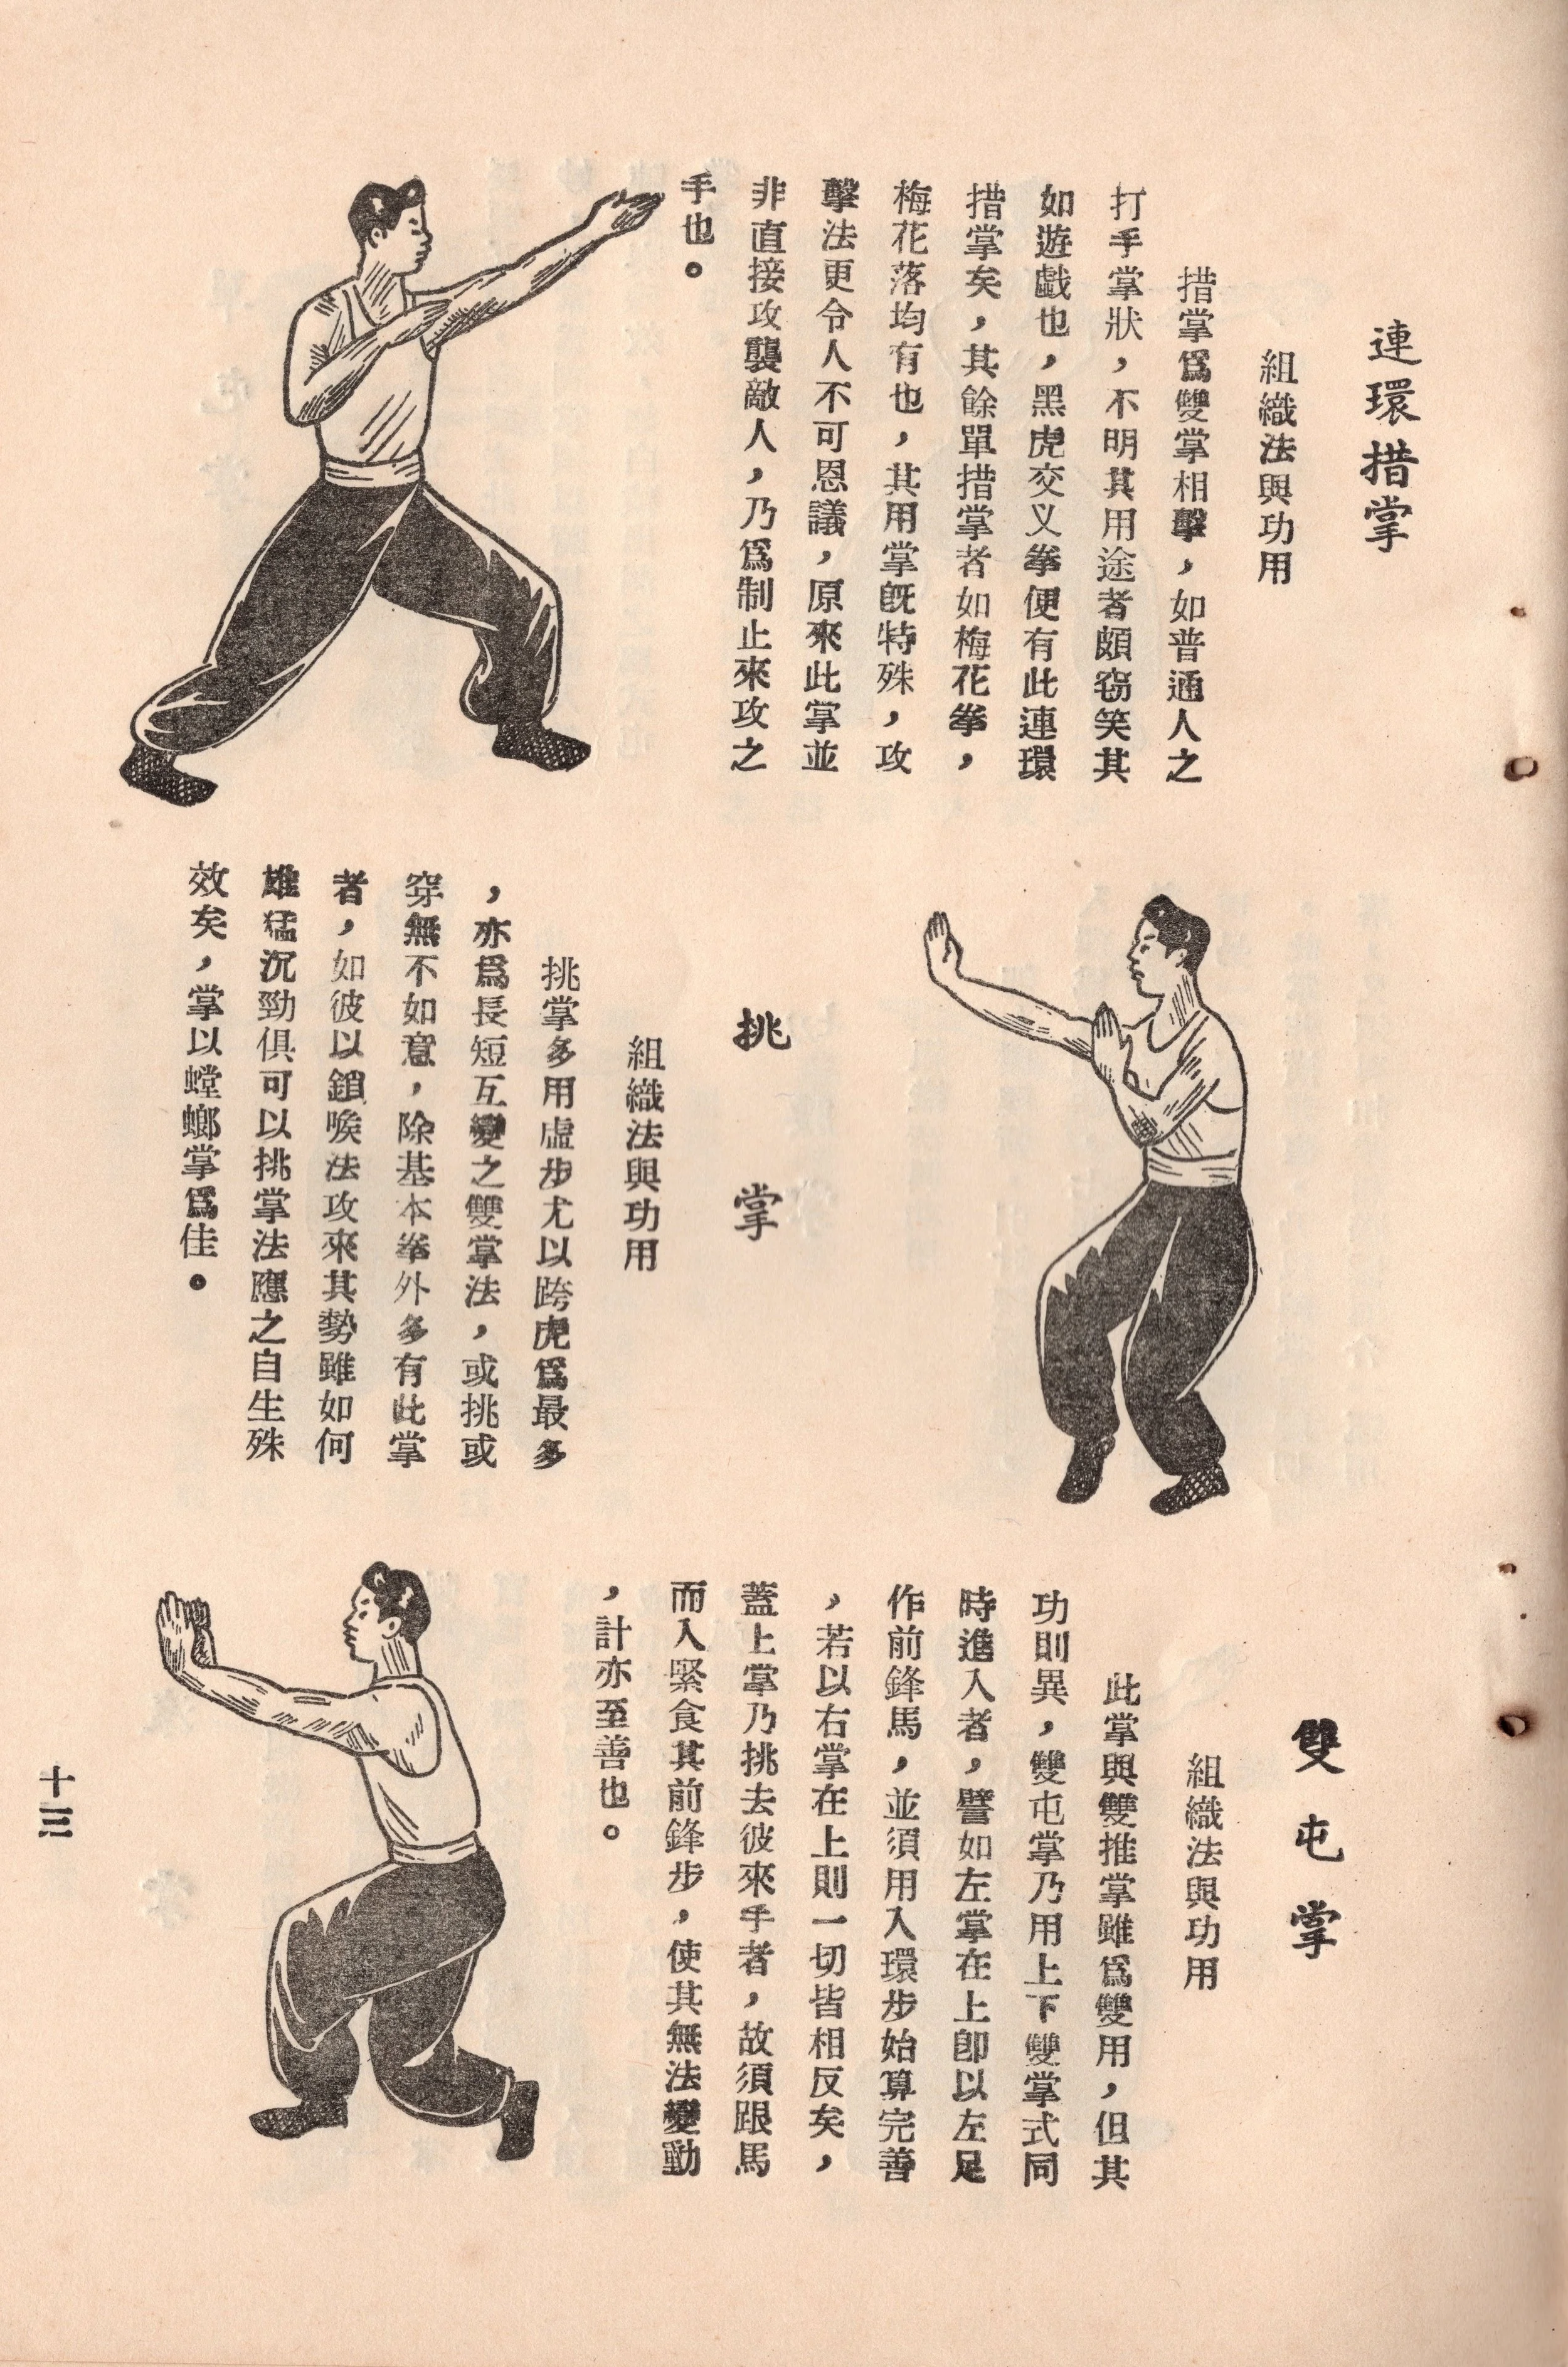 連環措掌
組織法與功用
措掌爲雙掌相擊，如普通人之
打手掌狀，不明其用途者頗窃笑其
如遊戲也，黑虎交义拳便有此連環
措掌矣，其餘單措掌者如梅花拳，
梅花落均有也，其用掌旣特殊，攻
擊法更令人不可恩議，原來此掌並
非直接攻襲敵人，乃爲制止來攻之
手也。
挑掌
組織法與功用
挑掌多用虛步尤以跨虎爲最多
，亦爲長短互變之雙掌法，或挑或
穿無不如意，除基本拳外多有此掌
者，如彼以鎖喉法攻來其勢雖如何
雄猛沉勁俱可以挑掌法應之自生殊
效矣，掌以螳螂掌爲佳。
雙屯掌
組織法與功用
此掌與雙推掌雖爲雙用，但其
功則異，雙屯掌乃用上下雙掌式同
時進入者，譬如左掌在上卽以左足
作前鋒馬，並須用入環步始算完善
，若以右掌在上則一切皆相反矣，
蓋上掌乃挑去彼來手者，故須跟馬
而入緊食其前鋒步，使其無法變動
，計亦至善也。
十三